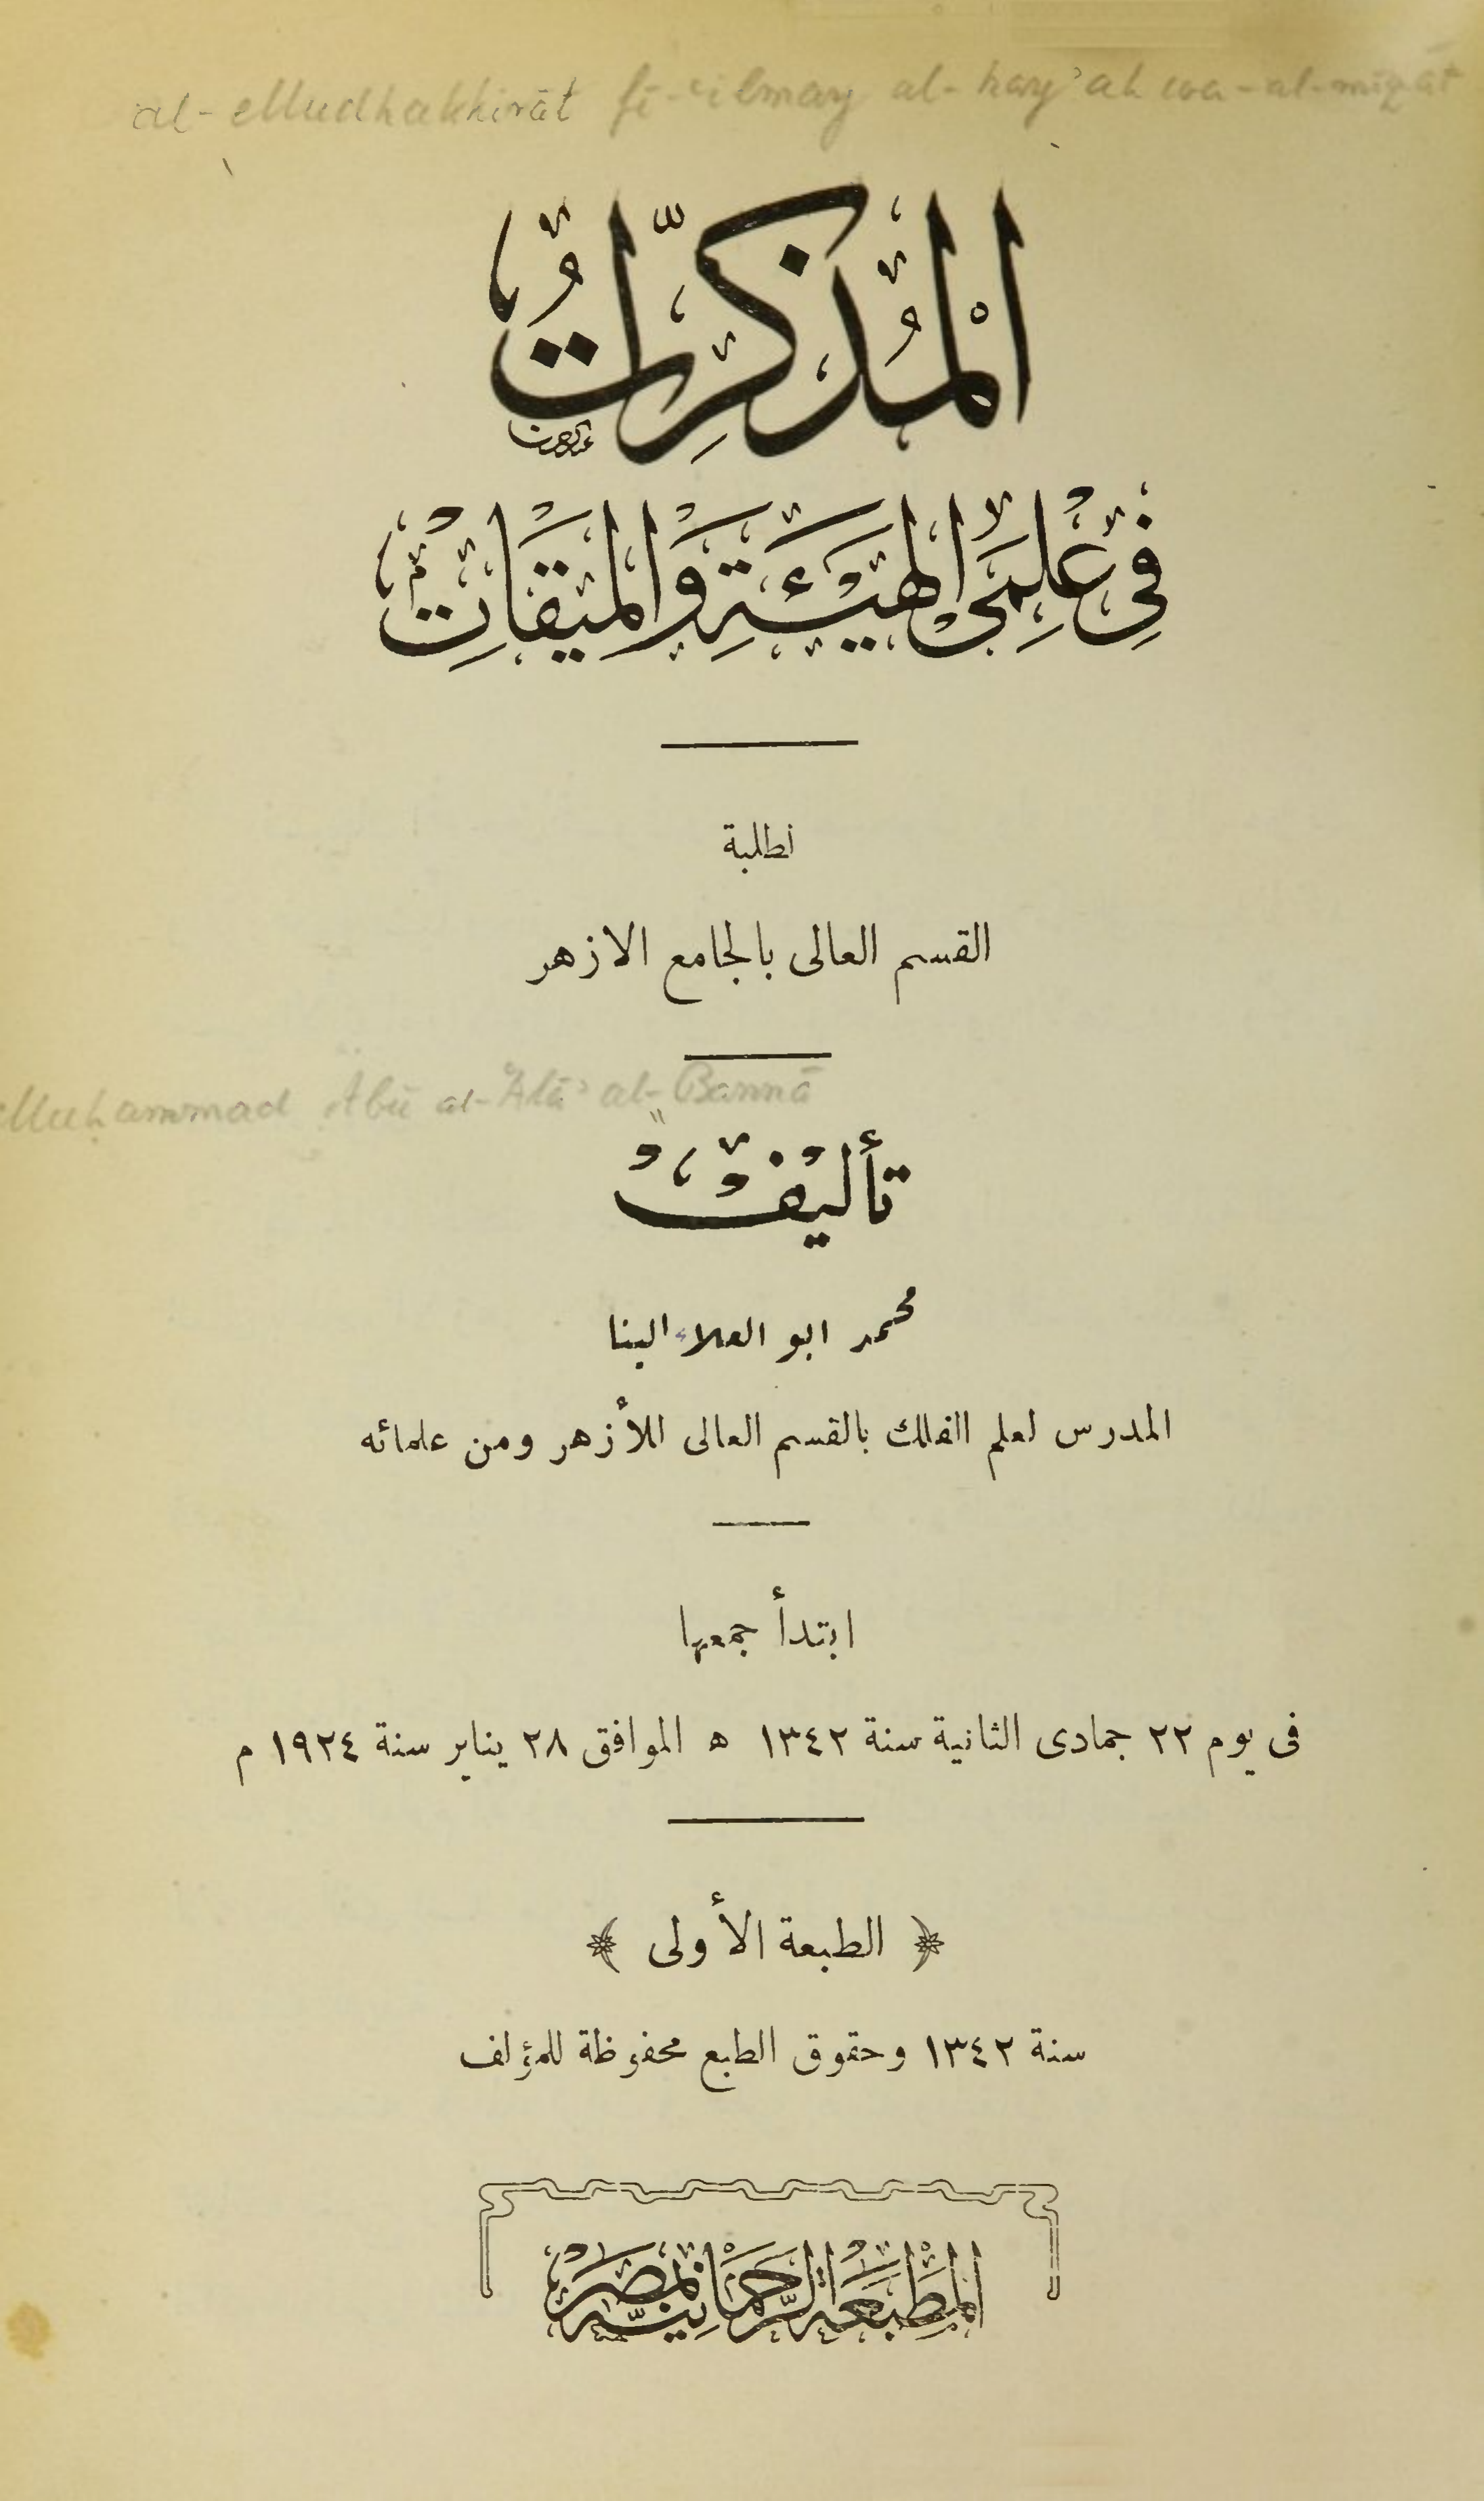 al-Mudhakkirāt fī-ʿilmay al-hayʾah wa-al-mīqāt
المُذكِّرَاتُ
فِي عِلْمَيِ الهَيْئَةِ وَالمِيقَاتِ
لطلبة
القسم العالى بالجامع الازهر
Muḥammad Abū al-ʿAlāʾ al-Bannā
تأليف
محمد ابو العلاء البنا
المدرس لعلم الفلك بالقسم العالى للأزهر ومن علمائه
ابتدأ جمعها
فى يوم ٢٢ جمادى الثانية سنة ١٣٤٢ ه الموافق ٢٨ يناير سنة ١٩٢٤ م
﴿ الطبعة الأولى ﴾
سنة ١٣٤٢ وحقوق الطبع محفوظة للمؤلف
المَطْبَعَة الرَّحْمَانِيَّة بِمِصْر